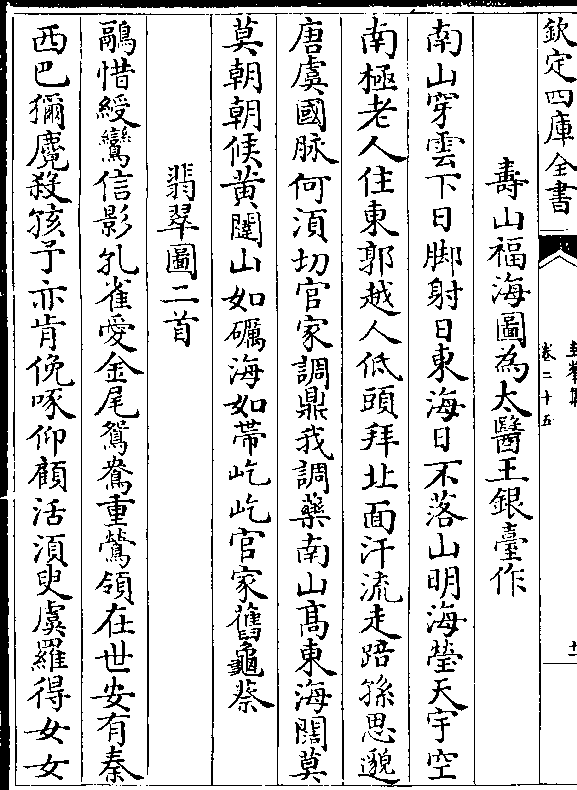 欽定四庫全書
卷二十五
壽山福海圖為太醫王銀臺作
南山穿雲下日脚射日東海日不落山明海瑩天宇空
南極老人住東郭越人低頭拜北面汗流走踣孫思邈
唐虞國脉何湏切官家調鼎我調藥南山髙東海闊莫
莫朝朝候黄闥山如礪海如帶屹屹官家舊龜蔡
翡翠圖二首
鷸惜綬鸞信影孔雀愛金尾鴛鴦重鶯領在世安有秦
西巴獼麑殺㹠予亦肯俛啄仰顧活湏臾虞羅得女女